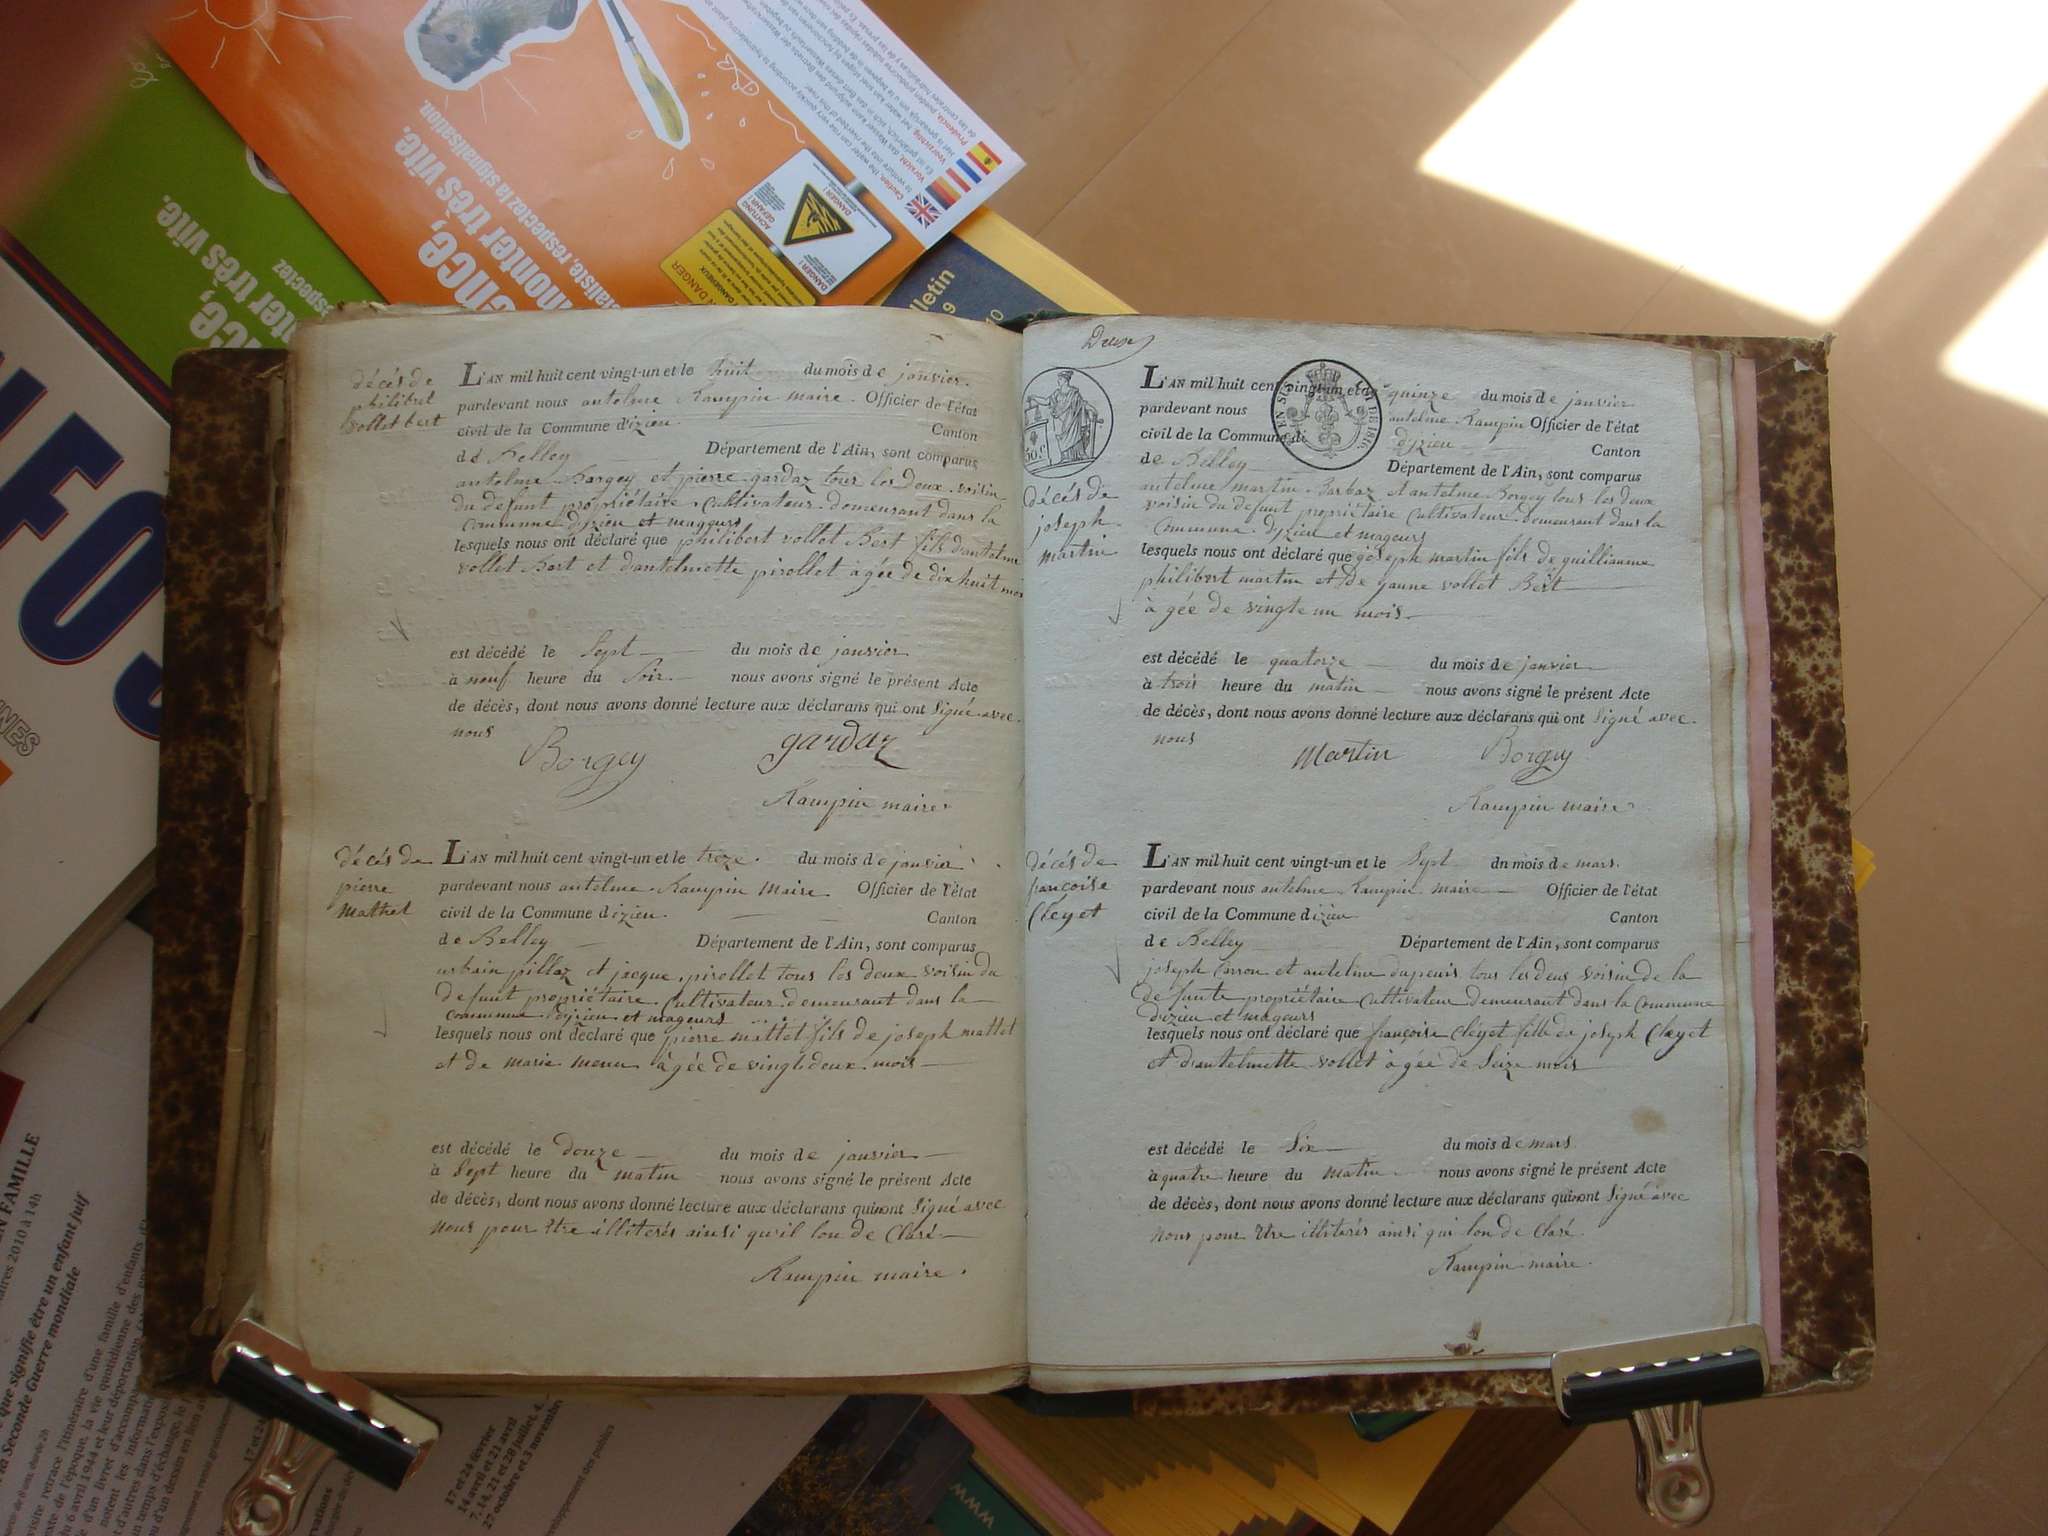 décés de
philibert
vollet bert
L'AN mil huit cent vingt-un et le huit du mois de janvier.
pardevant nous antelme Rampin maire. Officier de l'état
civil de la Commune d'izieu. Canton
de Belley Département de l'Ain, sont comparus
antelme Borgey et pierre gardaz tous les deux voisin
du defunt propriétaire cultivateur demeurant dans la
commune dyzieu et mageurs
lesquels nous ont déclaré que philibert vollet Bert fils d'antelme
vollet Bert et d'antelmette pirollet àgée de dix huit mois
est décédé le Sept du mois de janvier
à neuf heure du Soir. nous avons signé le présent Acte
de décès, dont nous avons donné lecture aux déclarans qui ont Signé avec
nous
Borgey gardaz
Rampin maire
décés de
pierre
mathet
L'AN mil huit cent vingt-un et le treze. du mois de janvier
pardevant nous antelme Rampin Maire Officier de l'état
civil de la Commune dizieu. Canton
de Belley Département de l'Ain, sont comparus
urbain pillaz et jacque pirollet tous les deux voisin du
defunt propriétaire cultivateur demeurant dans la
commune dyzieu et mageurs
lesquels nous ont déclaré que pierre mattet fils de joseph mattet
et de marie menu àgée de vingt deux mois
est décédé le douze du mois de janvier
à Sept heure du matin nous avons signé le présent Acte
de décès, dont nous avons donné lecture aux déclarans qui nont Signé avec
nous pour être illiterés ainsi qu'il lon de Claré.
Rampin maire.
50.c
EN SUS
DE 1816
décés de
joseph
martin
L'AN mil huit cent vingt-un et le quinze du mois de janvier
pardevant nous antelme Rampin Officier de l'état
civil de la Commune d'izieu Canton
de Belley Département de l'Ain, sont comparus
antelme martin Barbaz et antelme Borgey tous les deux
voisin du defunt propriétaire cultivateur demeurant dans la
commune dyzieu et mageurs
lesquels nous ont déclaré que joseph martin fils de guilliaume
philibert martin et de jeanne vollet Bert
àgée de vingte un mois.
est décédé le quatorze du mois de janvier
à trois heure du matin nous avons signé le présent Acte
de décès, dont nous avons donné lecture aux déclarans qui ont Signé avec
nous
martin Borgey
Rampin maire
décés de
françoise
Cleyet
L'AN mil huit cent vingt-un et le Sept dn mois de mars.
pardevant nous antelme Rampin maire Officier de l'état
civil de la Commune dizieu Canton
de Belley Département de l'Ain, sont comparus
joseph Carron et antelme dupeuis tous les deus voisin de la
defunte propriétaire cultivateur demeurant dans la commune
dizieu et mageurs
lesquels nous ont déclaré que françoise Cleyet fille de joseph Cleyet
et d'antelmette vollet àgée de Seize mois
est décédé le Six du mois de mars
à quatre heure du matin. nous avons signé le présent Acte
de décès, dont nous avons donné lecture aux déclarans qui nont Signé avec
nous pour être illitarés ainsi qui lon de Claré.
Rampin maire.
très vite.
monter très vite.
respectez la signalisation.
DANGER
ACHTUNG
GEFAHR
DANGER !
EN FAMILLE
que signifie être un enfant juif
la Seconde Guerre mondiale
17 et 24 février
14 avril et 21 avril
7, 14, 21 et 28 juillet, 4,
27 octobre et 3 novembre
www